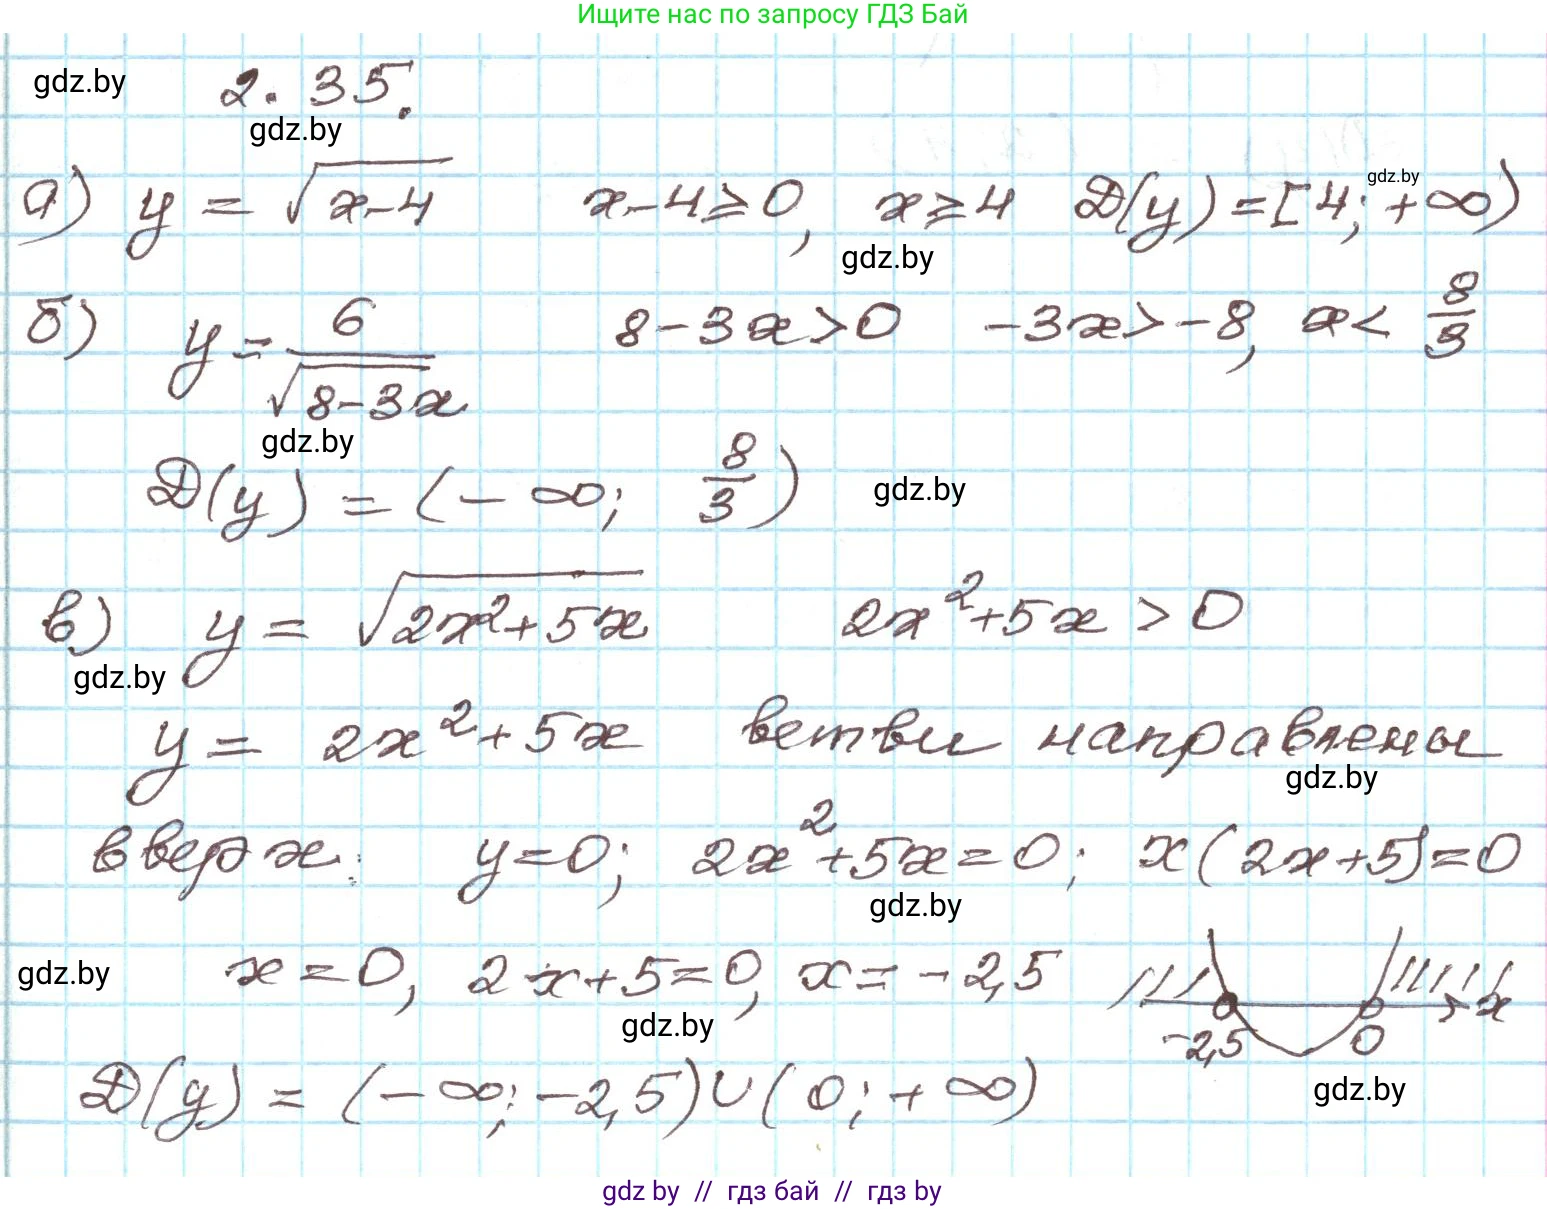 Ищите нас по запросу ГДЗ Бай
gdz.by 2.35.
gdz.by
а) y = √(x-4) x-4≥0, x≥4 D(y)=[4; +∞)
gdz.by
gdz.by
б) y = 6/√(8-3x) 8-3x>0 -3x>-8, x< 8/3
gdz.by
D(y) = (-∞; 8/3) gdz.by
в) y = √(2x²+5x) 2x²+5x > 0
gdz.by
y = 2x²+5x ветви направлены
gdz.by
вверх: y=0; 2x²+5x=0; x(2x+5)=0
gdz.by
gdz.by x=0, 2x+5=0, x=-2,5 x
gdz.by -2,5 0
D(y) = (-∞; -2,5)∪(0; +∞) gdz.by
gdz by // гдз бай // гдз by